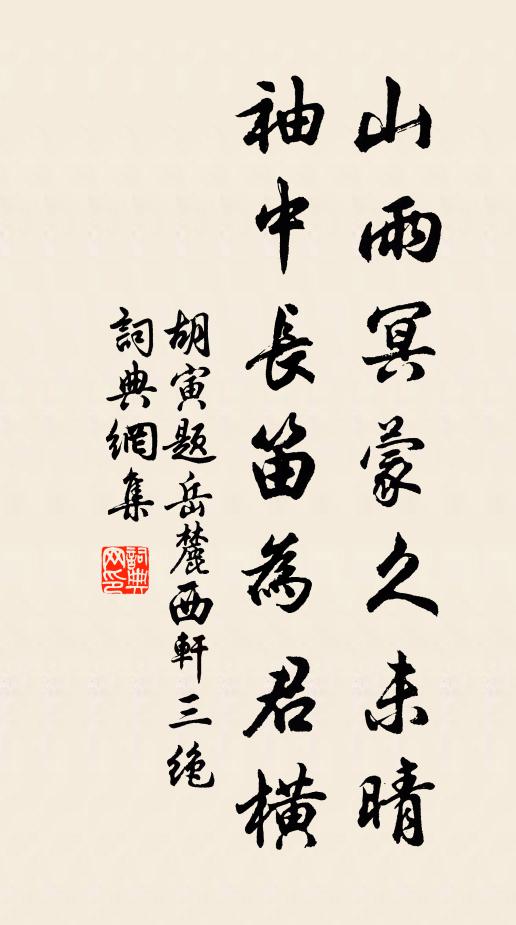 山雨冥蒙久未晴
袖中長笛為君橫
胡寅题岳麓西軒三绝
詞典網集
詞典网印